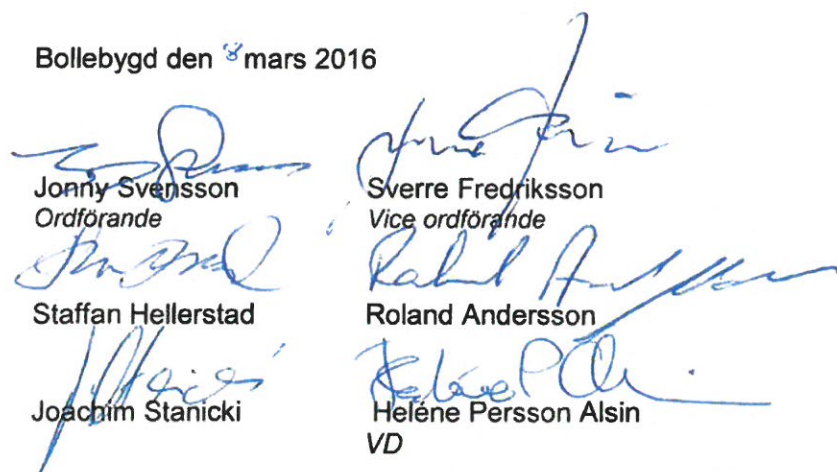 Bollebygd den 8 mars 2016
Jonny Svensson
Ordförande
Sverre Fredriksson
Vice ordförande
Staffan Hellerstad
Roland Andersson
Joachim Stanicki
Heléne Persson Alsin
VD